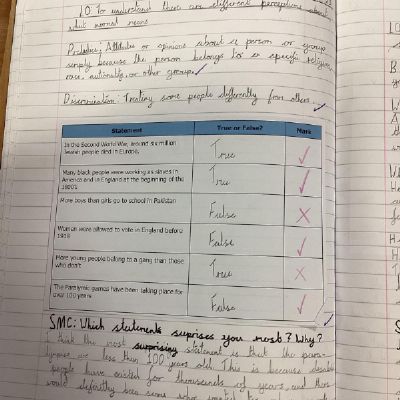 LO: To understand there are different perceptions about
what normal means
Prejudice: Attitudes or opinions about a person or group
simply because the person belongs to a specific religion,
race, nationality, or other group.
Discrimination: Treating some people differently from others.
Statement True or False? Mark
In the Second World War, around six million
Jewish people died in Europe. True ✓
Many black people were working as slaves in
America and in England at the beginning of the
1800's True ✓
More boys than girls go to school in Pakistan False ✗
Women were allowed to vote in England before
1918 False ✓
More young people belong to a gang than those
who don't True ✗
The Paralympic games have been taking place for
over 100 years False ✓
SMC: Which statements suprises you most? Why?
I think the most surprising statement is that the para-
are less than 100 years old. This is because
people have existed for thousands of years and there
would definitley been